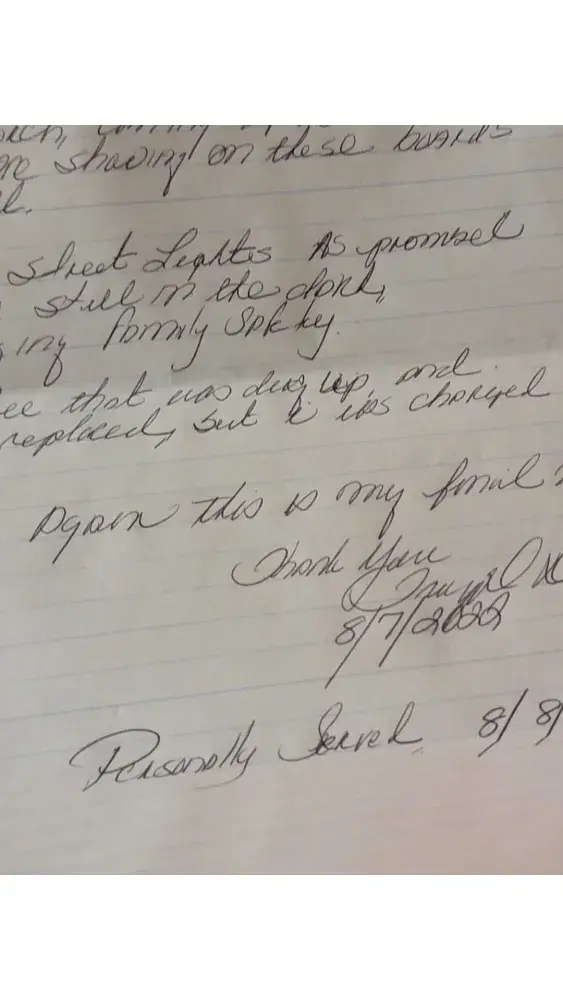 shaving on these boards
Street Lights As promised
still in the dark,
my family safety.
that was dug up, and
replaced, but it was charged
Again this is my
Thank You
8/7/2022
Personally Served 8/8/